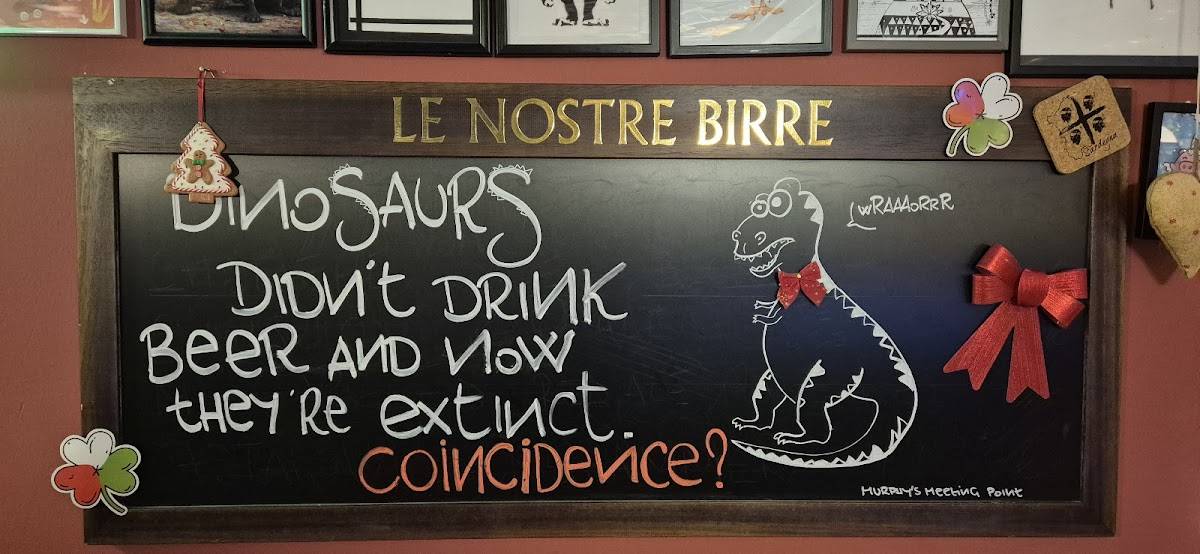 LE NOSTRE BIRRE
Sardegna
DINOSAURS
wRAAAoRRR
DIDN't DRINK
BeeR AND NOW
they're extinct.
COINCIDENCE?
MURPHY'S MEETING POINT